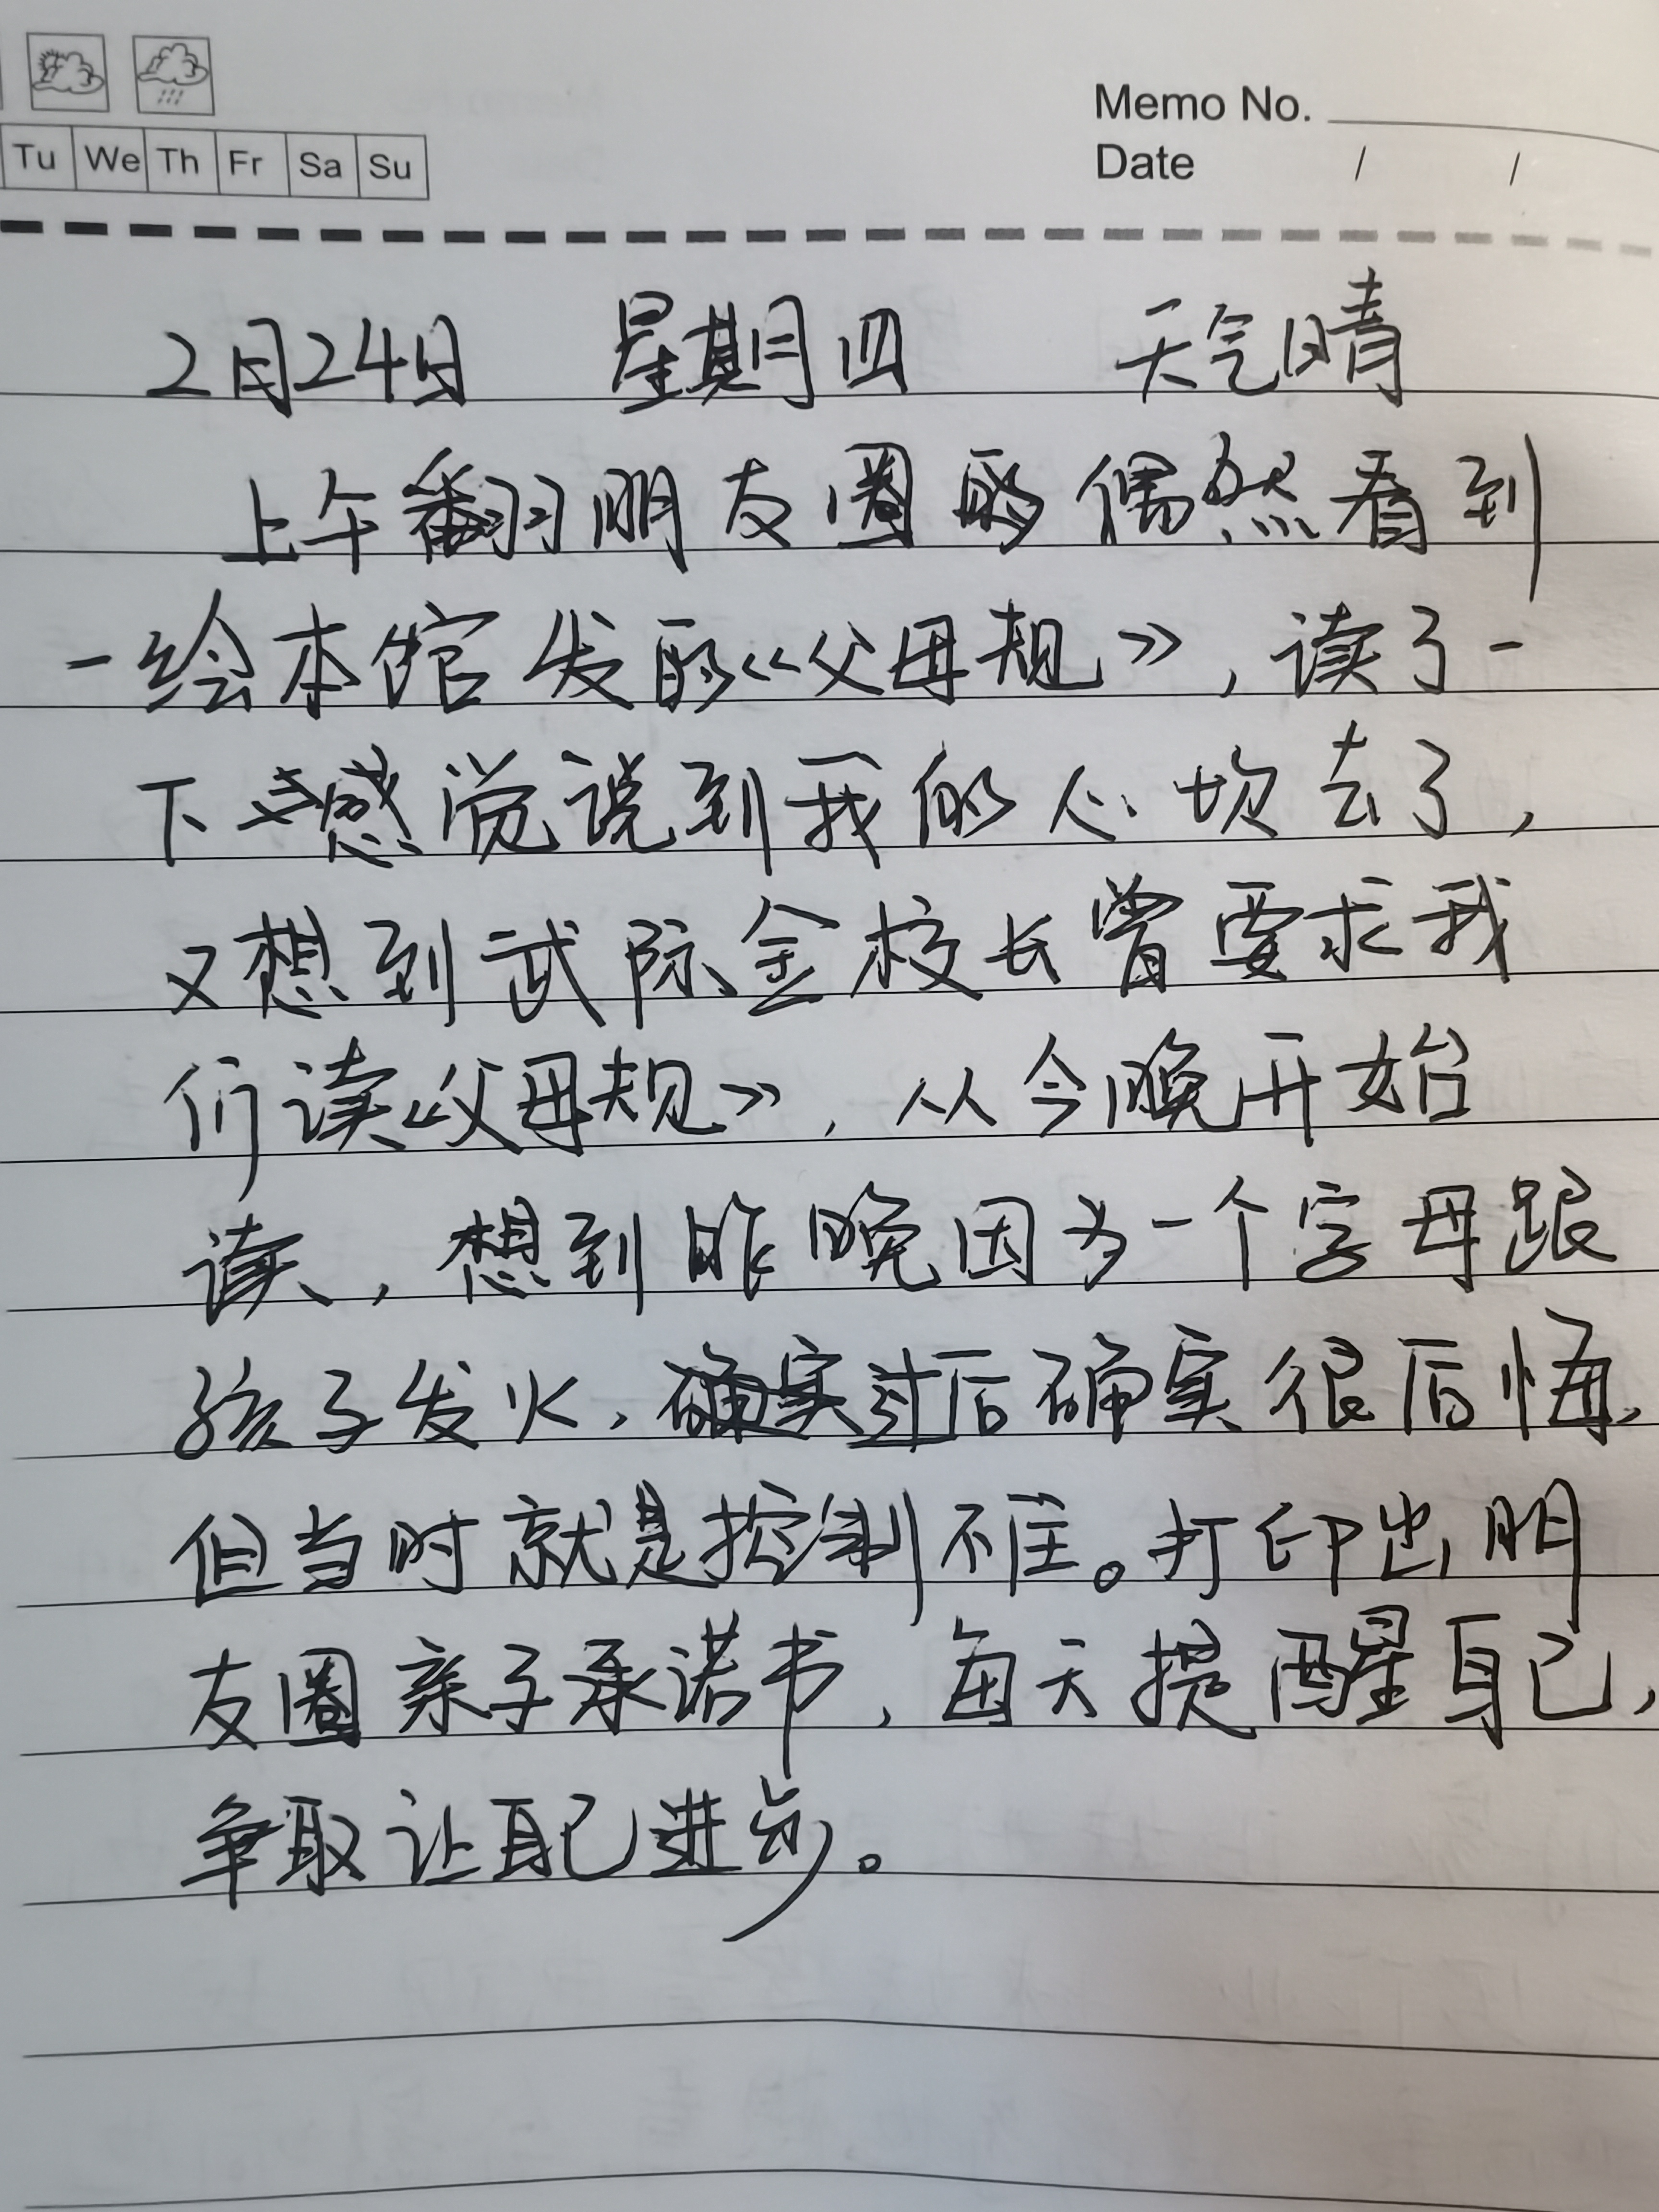 Memo No.
Tu We Th Fr Sa Su
Date / /
2月24日 星期四 天气晴
上午翻朋友圈的偶然看到
一绘本馆发的《父母规》,读了一
下感觉说到我的心坎去了,
又想到武际金校长曾要求我
们读《父母规》,从今晚开始
读,想到昨晚因为一个字母跟
孩子发火,确实过后确实很后悔,
但当时就是控制不住。打印出朋
友圈亲子承诺书,每天提醒自己,
争取让自己进步。